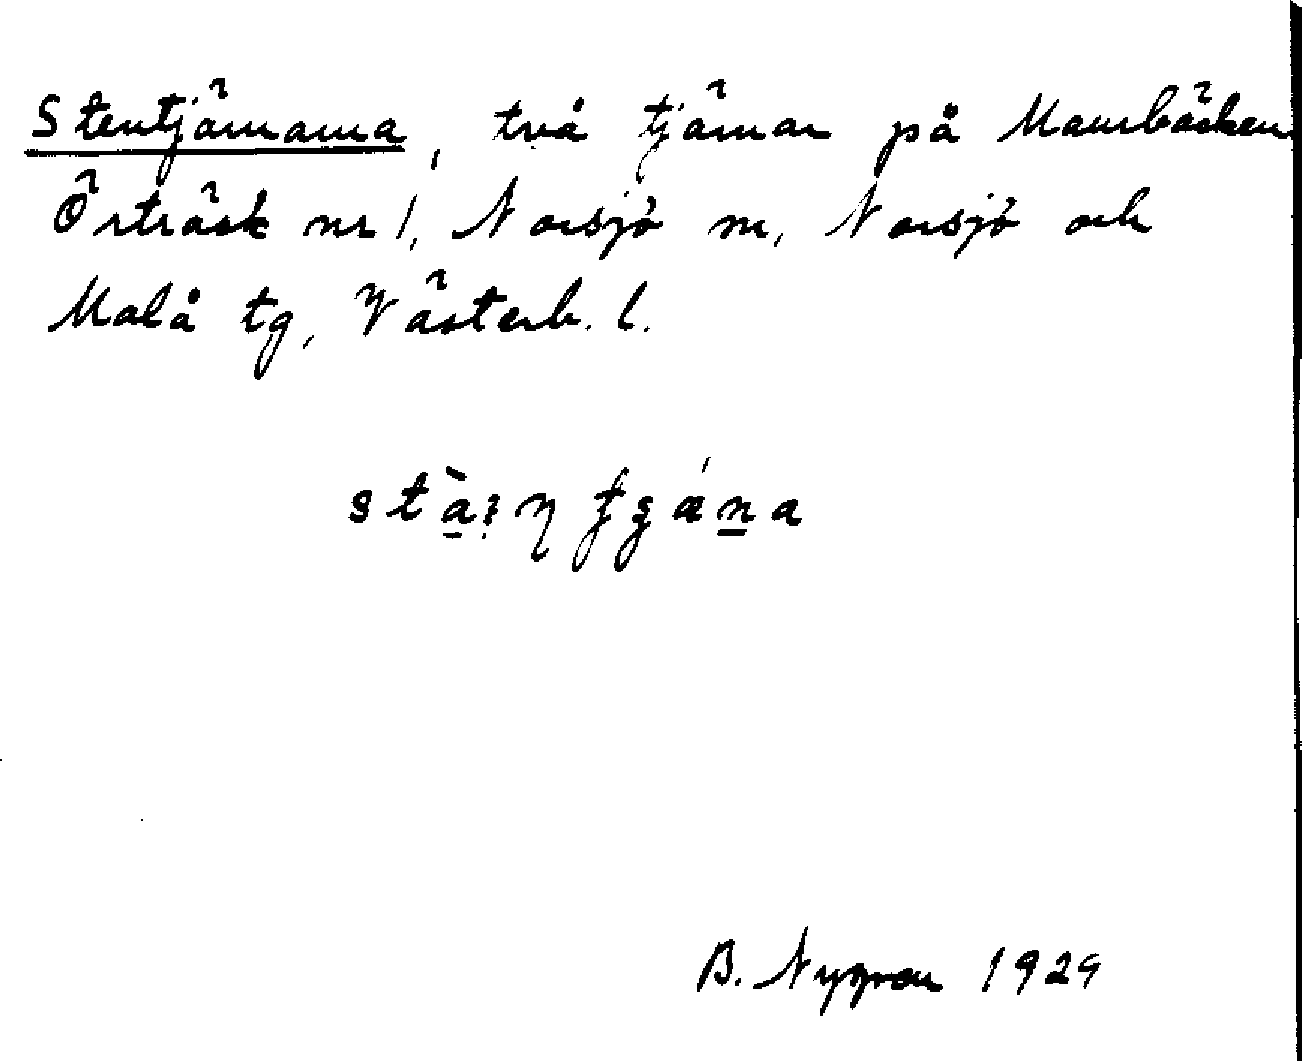 Stentjärnarna, två tjärnar på Maurbäcken
Örträsk nr 1, Norsjö sn, Norsjö och
Malå tg, Västerb. l.
B. Nygren 1929